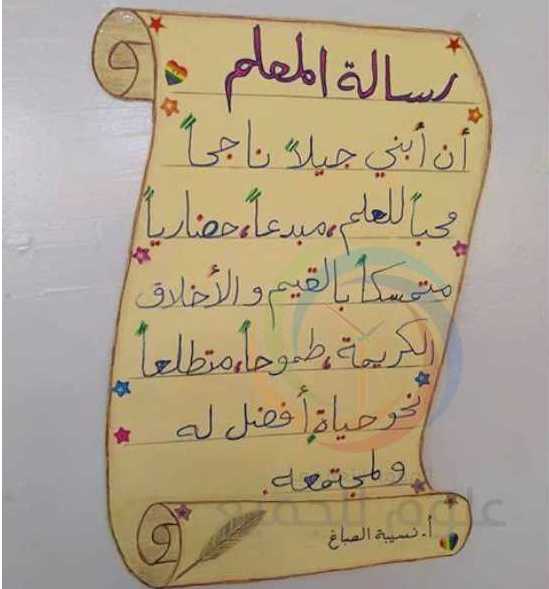 رسالة المعلم
أن أبني جيلاً ناجحاً
محباً للعلم، مبدعاً، حضارياً
متمسكاً بالقيم و الأخلاق
الكريمة، طموحاً، متطلعاً
نحو حياةٍ أفضل له
ولمجتمعه.
علوم للجميع
أ. نسيبة الصباغ